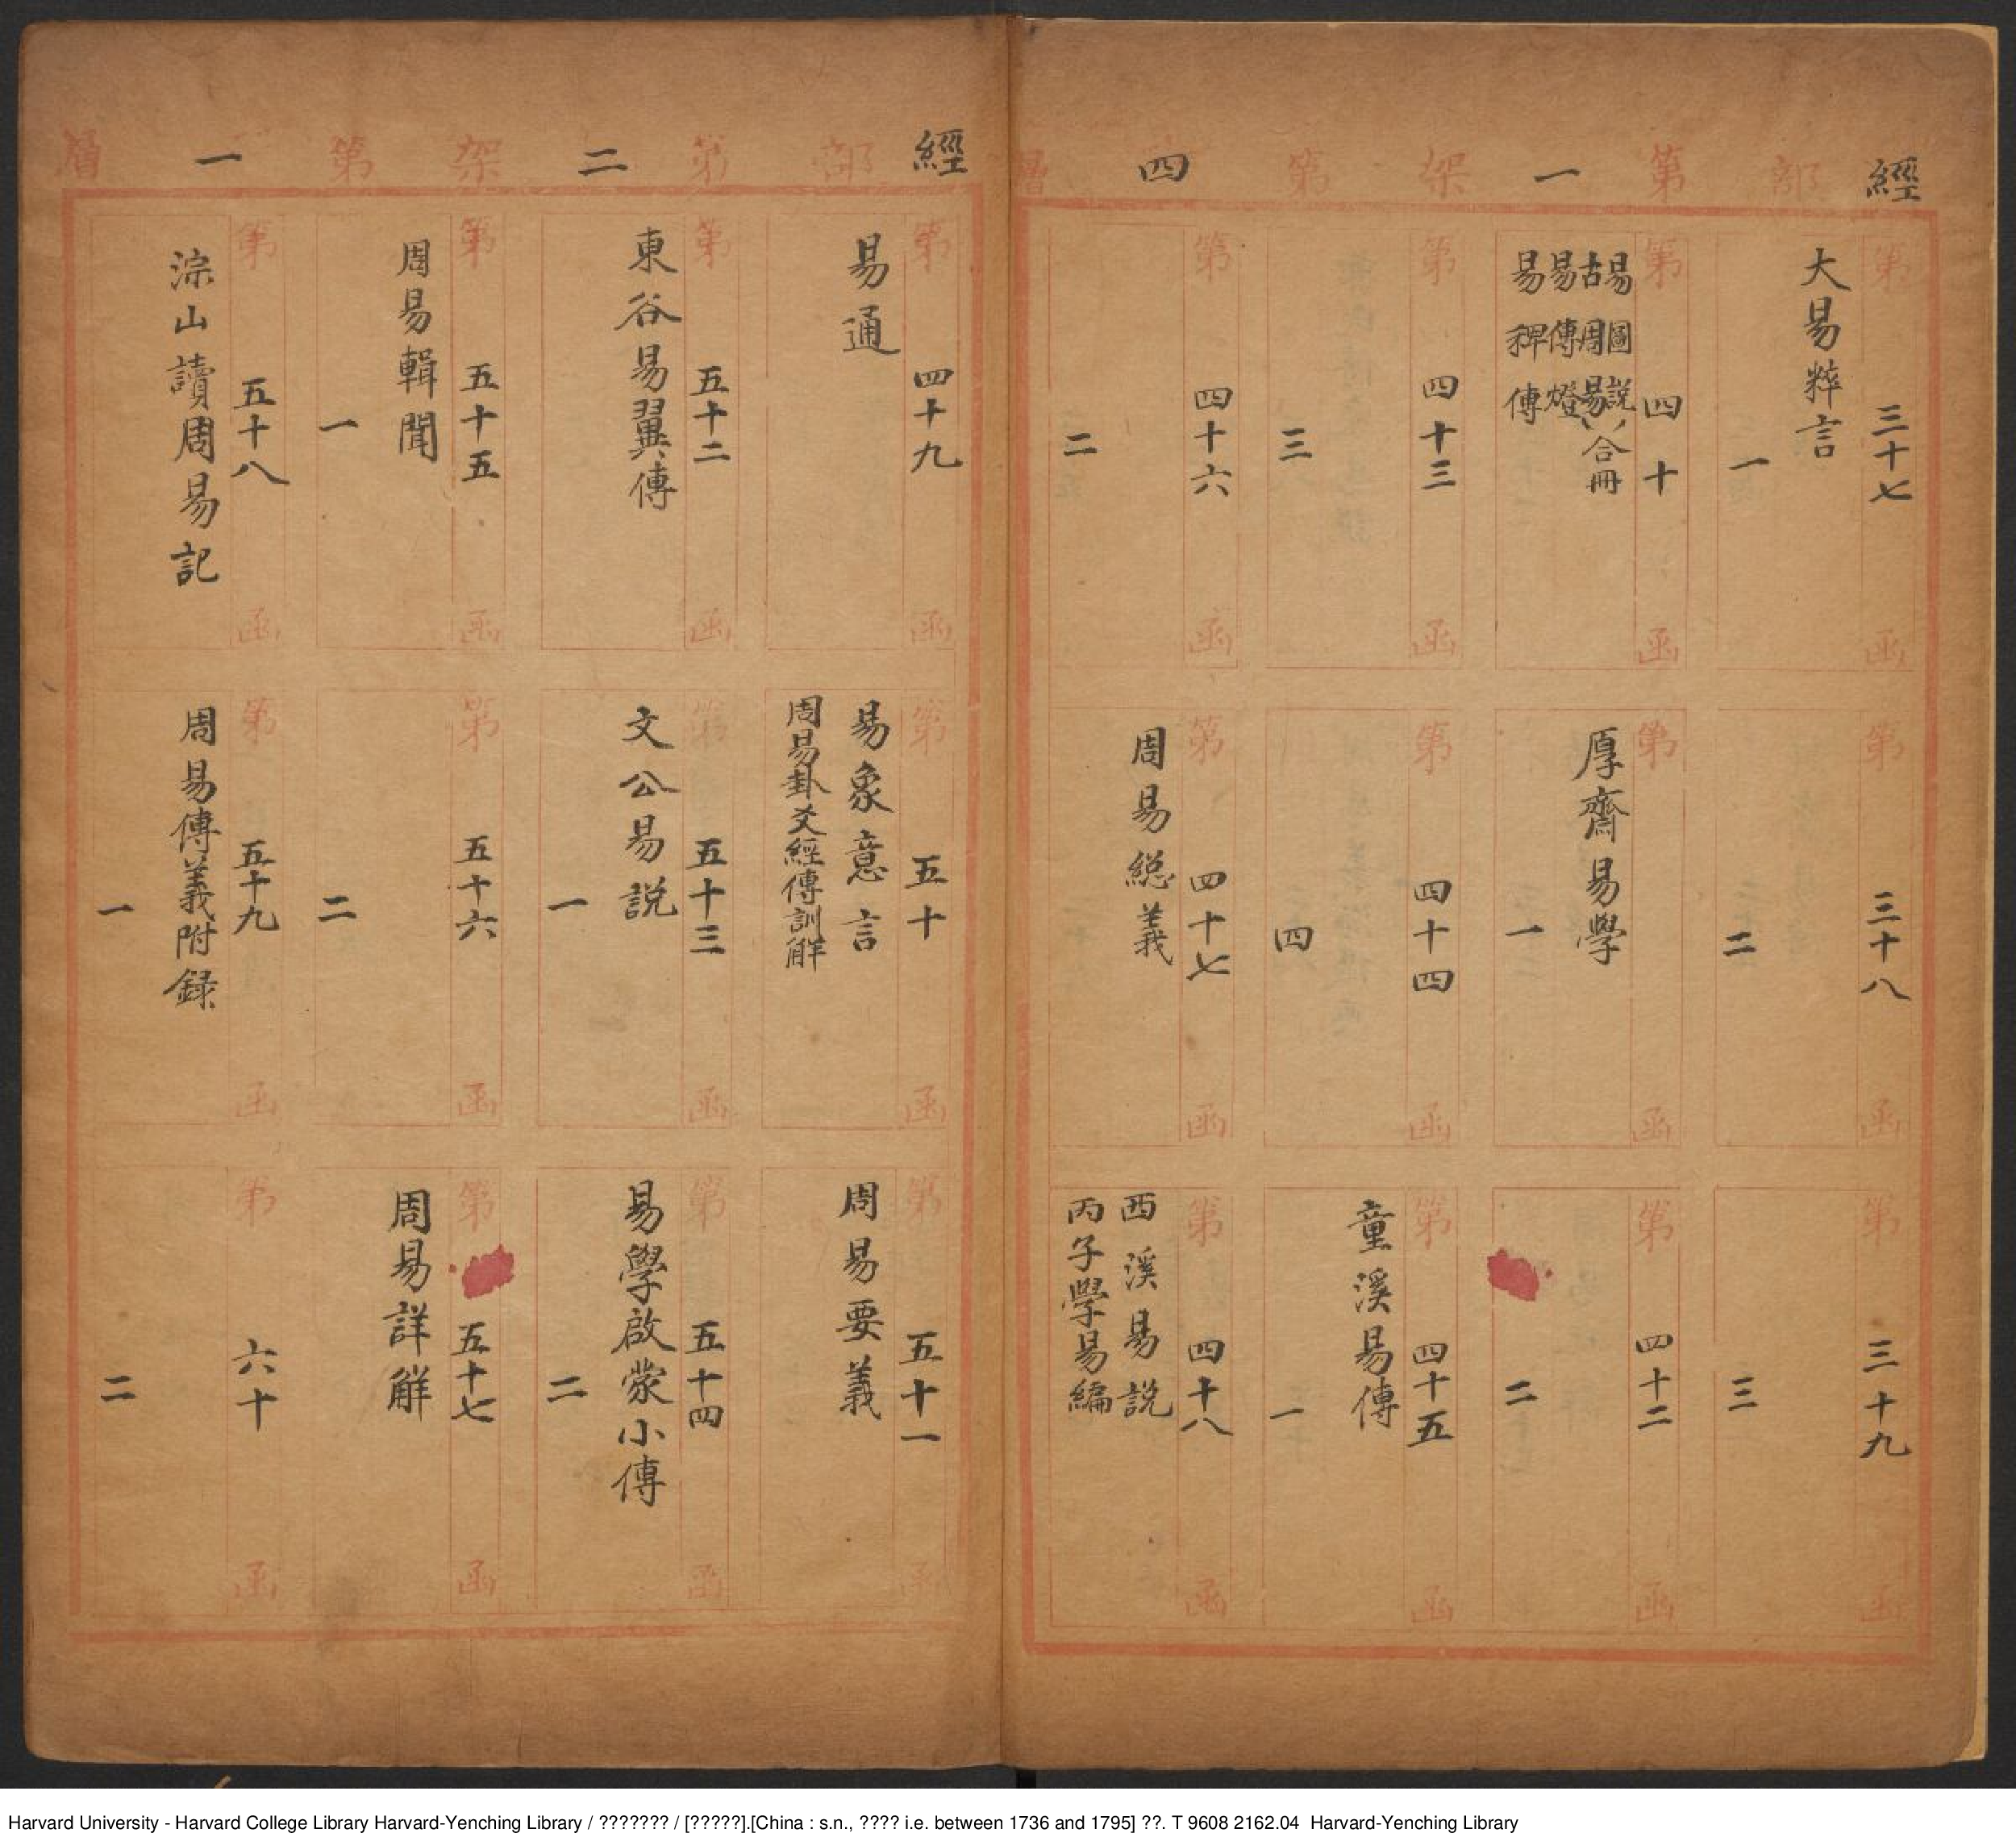 經部第一架第四層
第三十七函
大易粹言
一
第三十八函
二
第三十九函
三
第四十函
易圖説
古周易
合冊
易傳燈
易稗傳
第函
厚齋易學
一
第四十二函
二
第四十三函
三
第四十四函
四
第四十五函
童溪易傳
一
第四十六函
二
第四十七函
周易総義
第四十八函
西溪易説
丙子學易編
經部第二架第一層
第四十九函
易通
第五十函
易象意言
周易卦爻經傳訓解
第五十一函
周易要義
第五十二函
東谷易翼傳
第五十三函
文公易説
一
第五十四函
易學啟蒙小傳
二
第五十五函
周易輯聞
一
第五十六函
二
第五十七函
周易詳解
第五十八函
淙山讀周易記
第五十九函
周易傳義附録
一
第六十函
二
Harvard University - Harvard College Library Harvard-Yenching Library / ??????? / [?????].[China : s.n., ???? i.e. between 1736 and 1795] ??. T 9608 2162.04 Harvard-Yenching Library